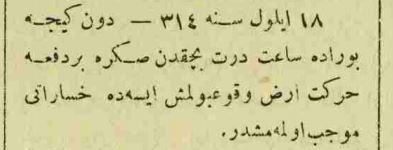 ١٨ ايلول سنه ٣١٤ — دون كيجه
بوراده ساعت درت بچقدن صكره بردفعه
حركت ارض وقوعبولمش ايسه‌ده خساراتى
موجب اوله‌مشدر.